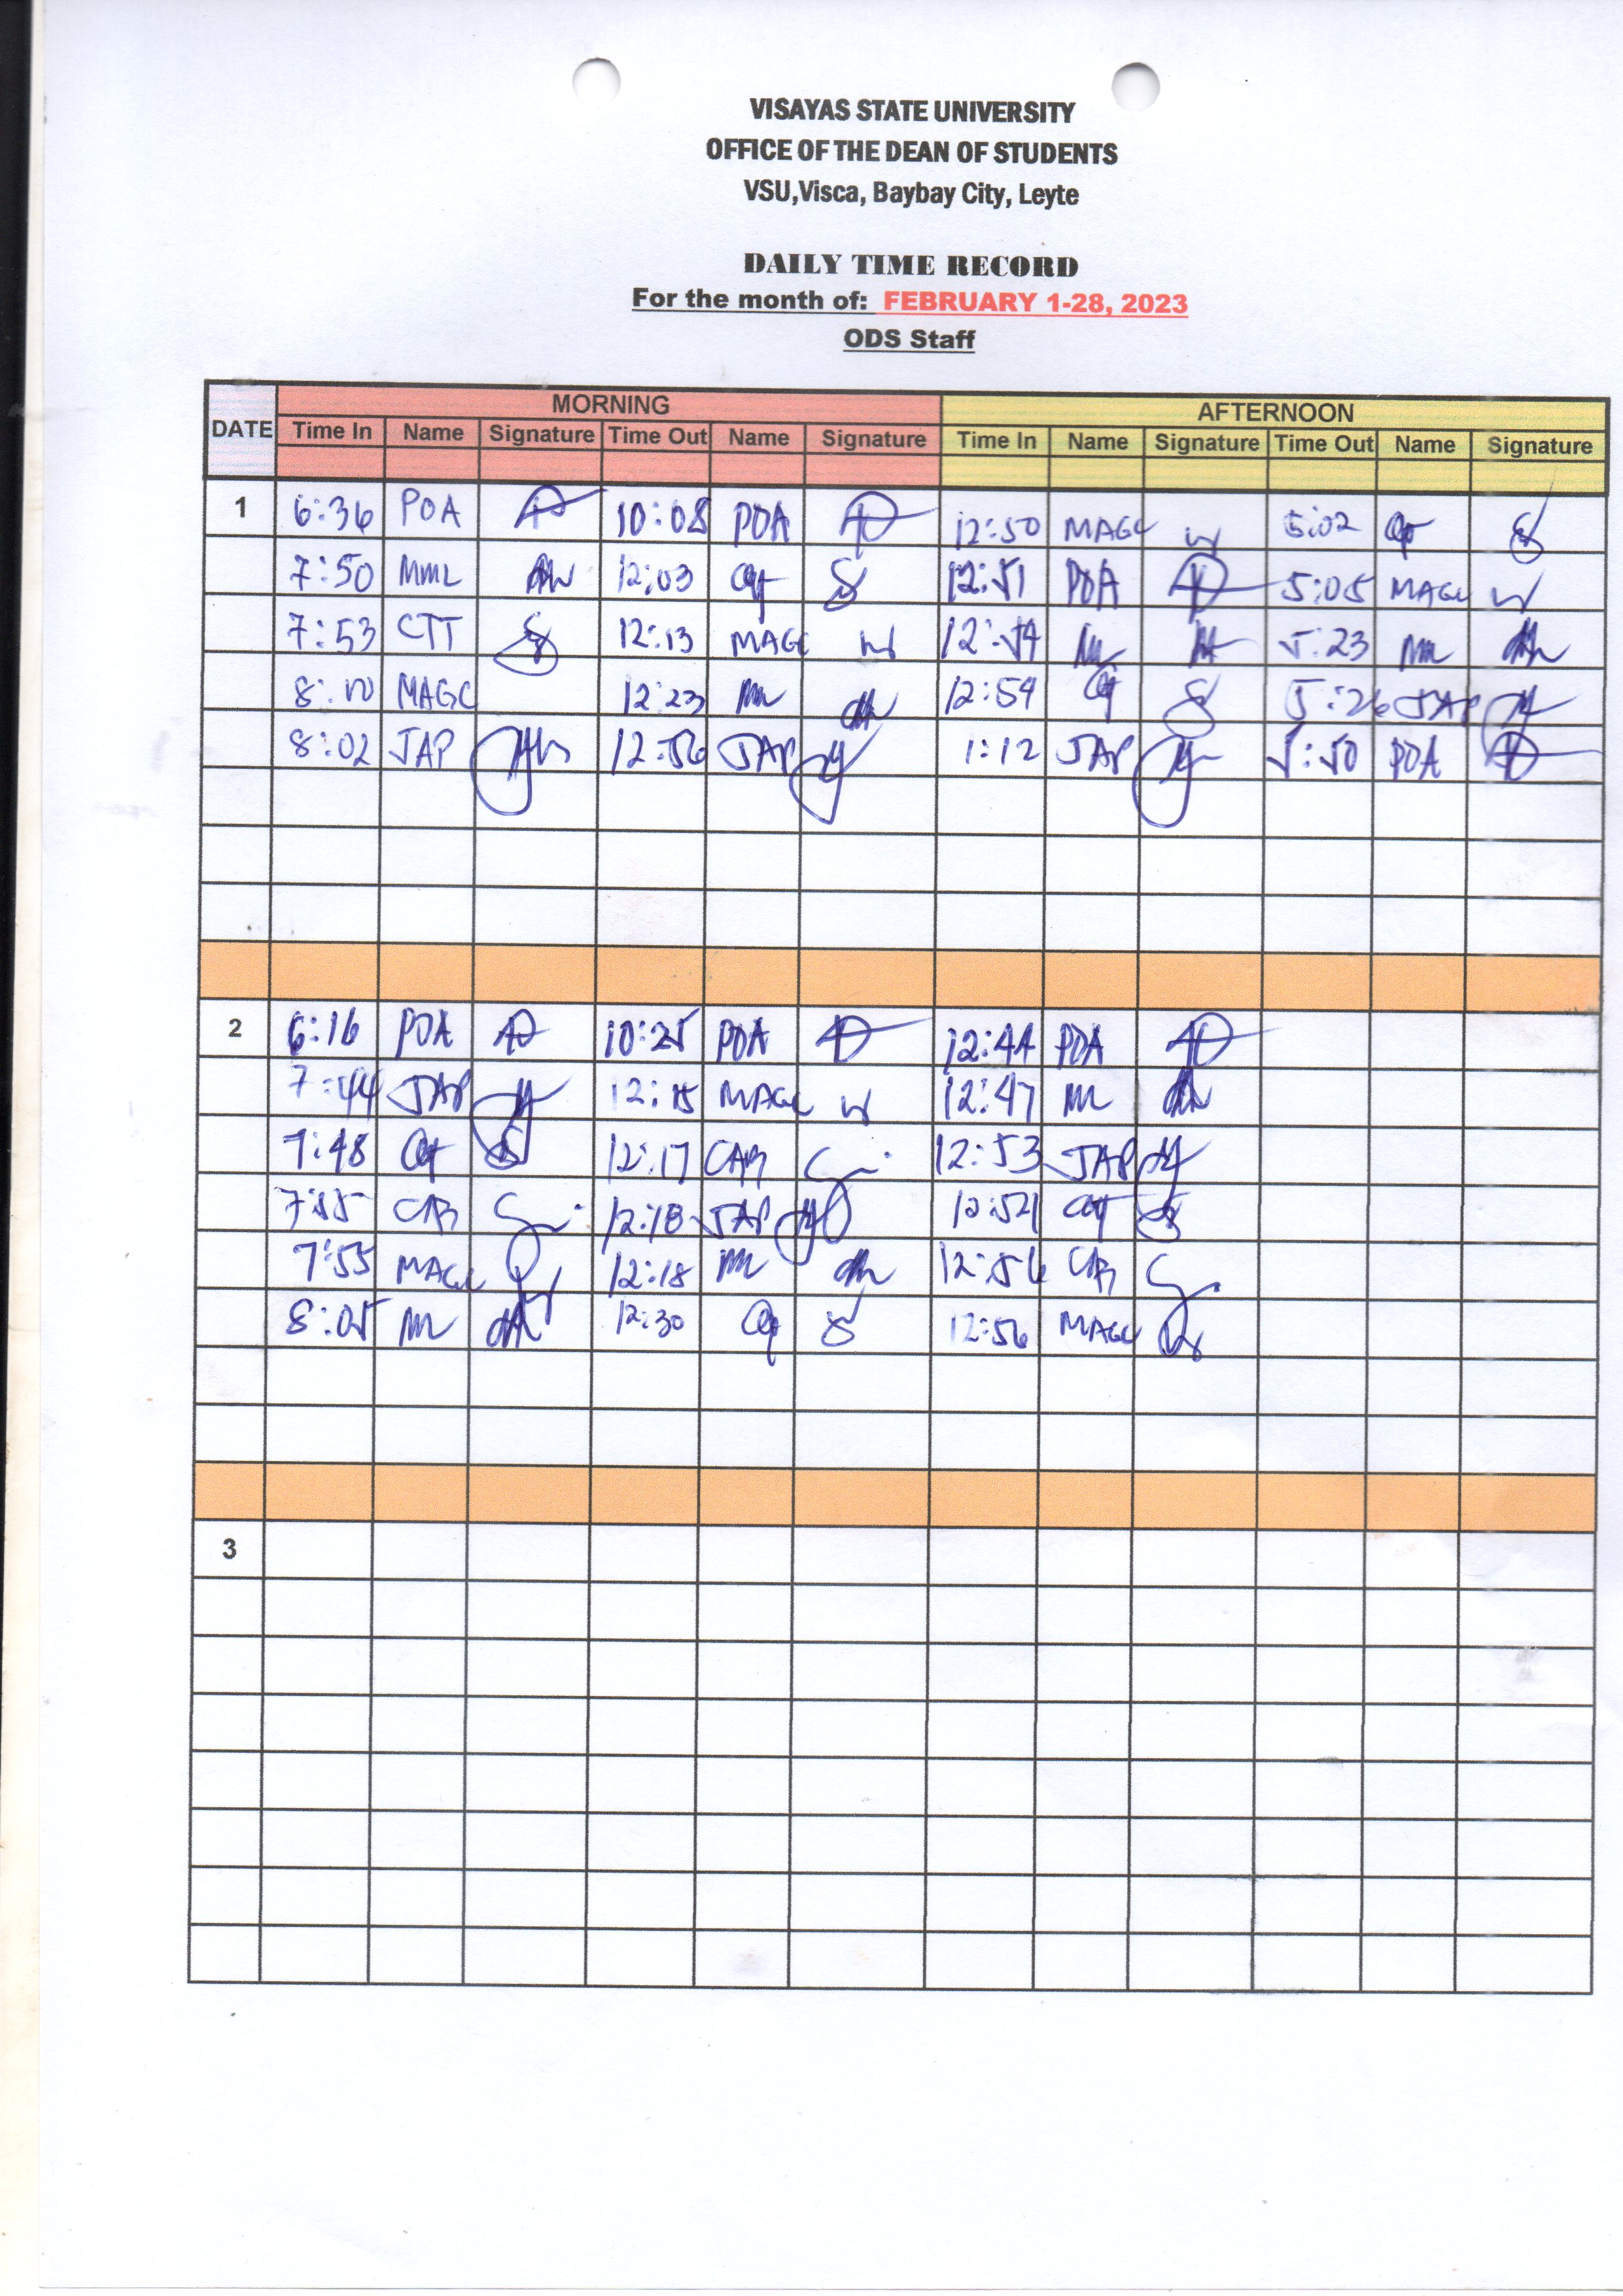 VISAYAS STATE UNIVERSITY
OFFICE OF THE DEAN OF STUDENTS
VSU,Visca, Baybay City, Leyte
DAILY TIME RECORD
For the month of: FEBRUARY 1-28, 2023
ODS Staff
DATE MORNING AFTERNOON
Time In Name Signature Time Out Name Signature Time In Name Signature Time Out Name Signature
1 6:36 POA 10:08 POA 12:50 MAGC 5:02
7:50 MML 12:03 12:51 POA 5:05 MAGC
7:53 CTT 12:13 MAGC 5:23
MAGC 12:23 12:54 5:26 JAP
8:02 JAP 12:56 JAP 1:12 JAP 5:50 POA
2 6:16 POA 10:25 POA 12:44 POA
7:44 JAP 12:15 MAGC 12:47
7:48 12:17 CAB 12:53 JAP
7:55 CAB 12:18 JAP
7:55 MAGC 12:18 12:56 CAB
8:05 12:30 12:56 MAGC
3